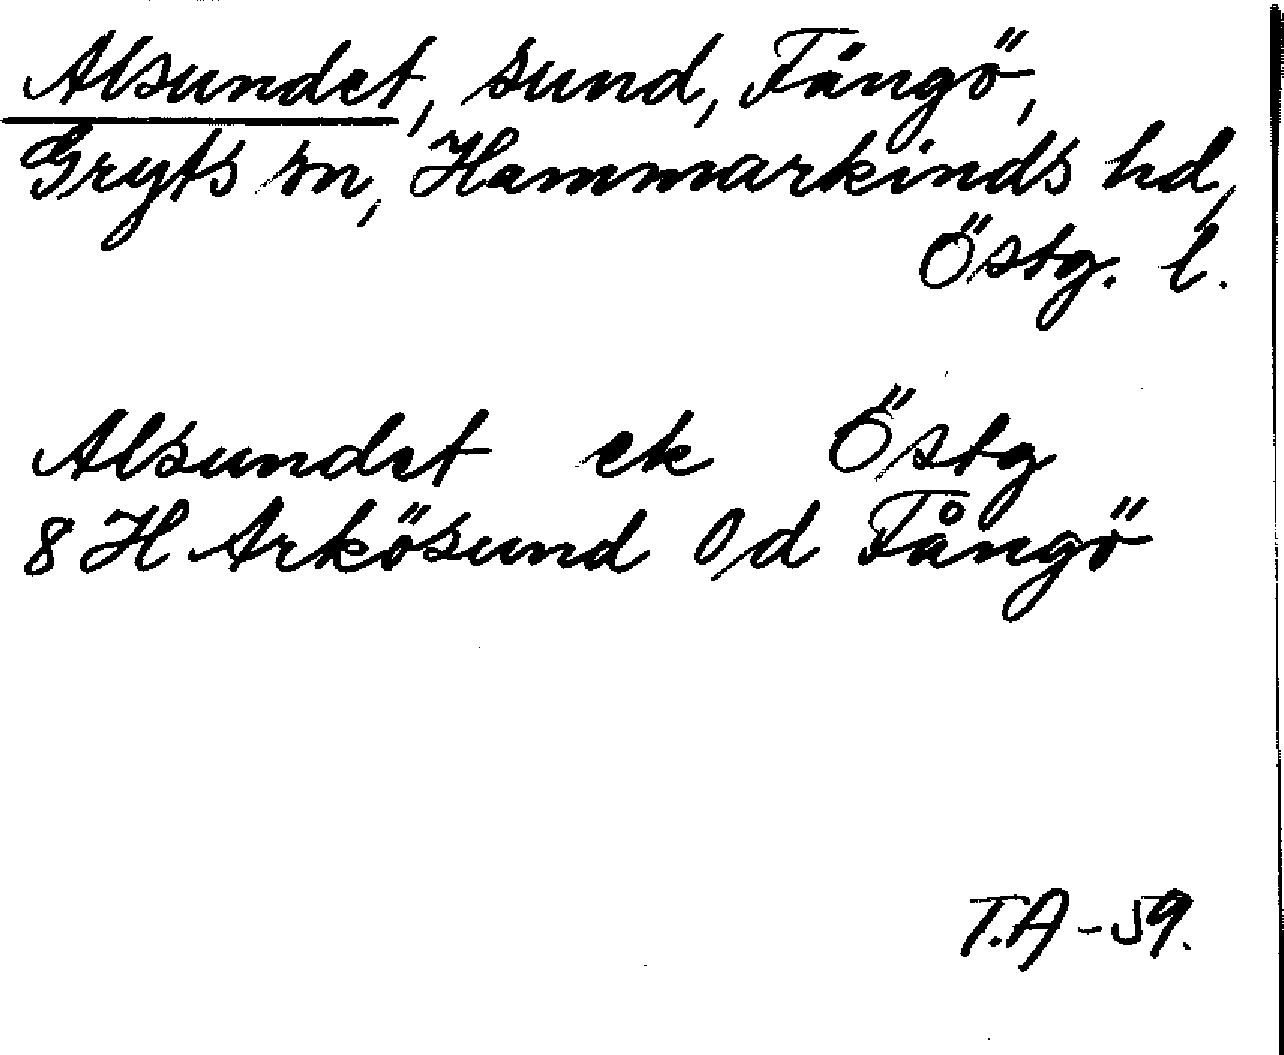 Alsundet, sund, Fångö,
Gryts sn, Hammarkinds hd,
Östg. l.
Alsundet ek Östg
8 H Arkösund O/d Fångö
T.A-59.